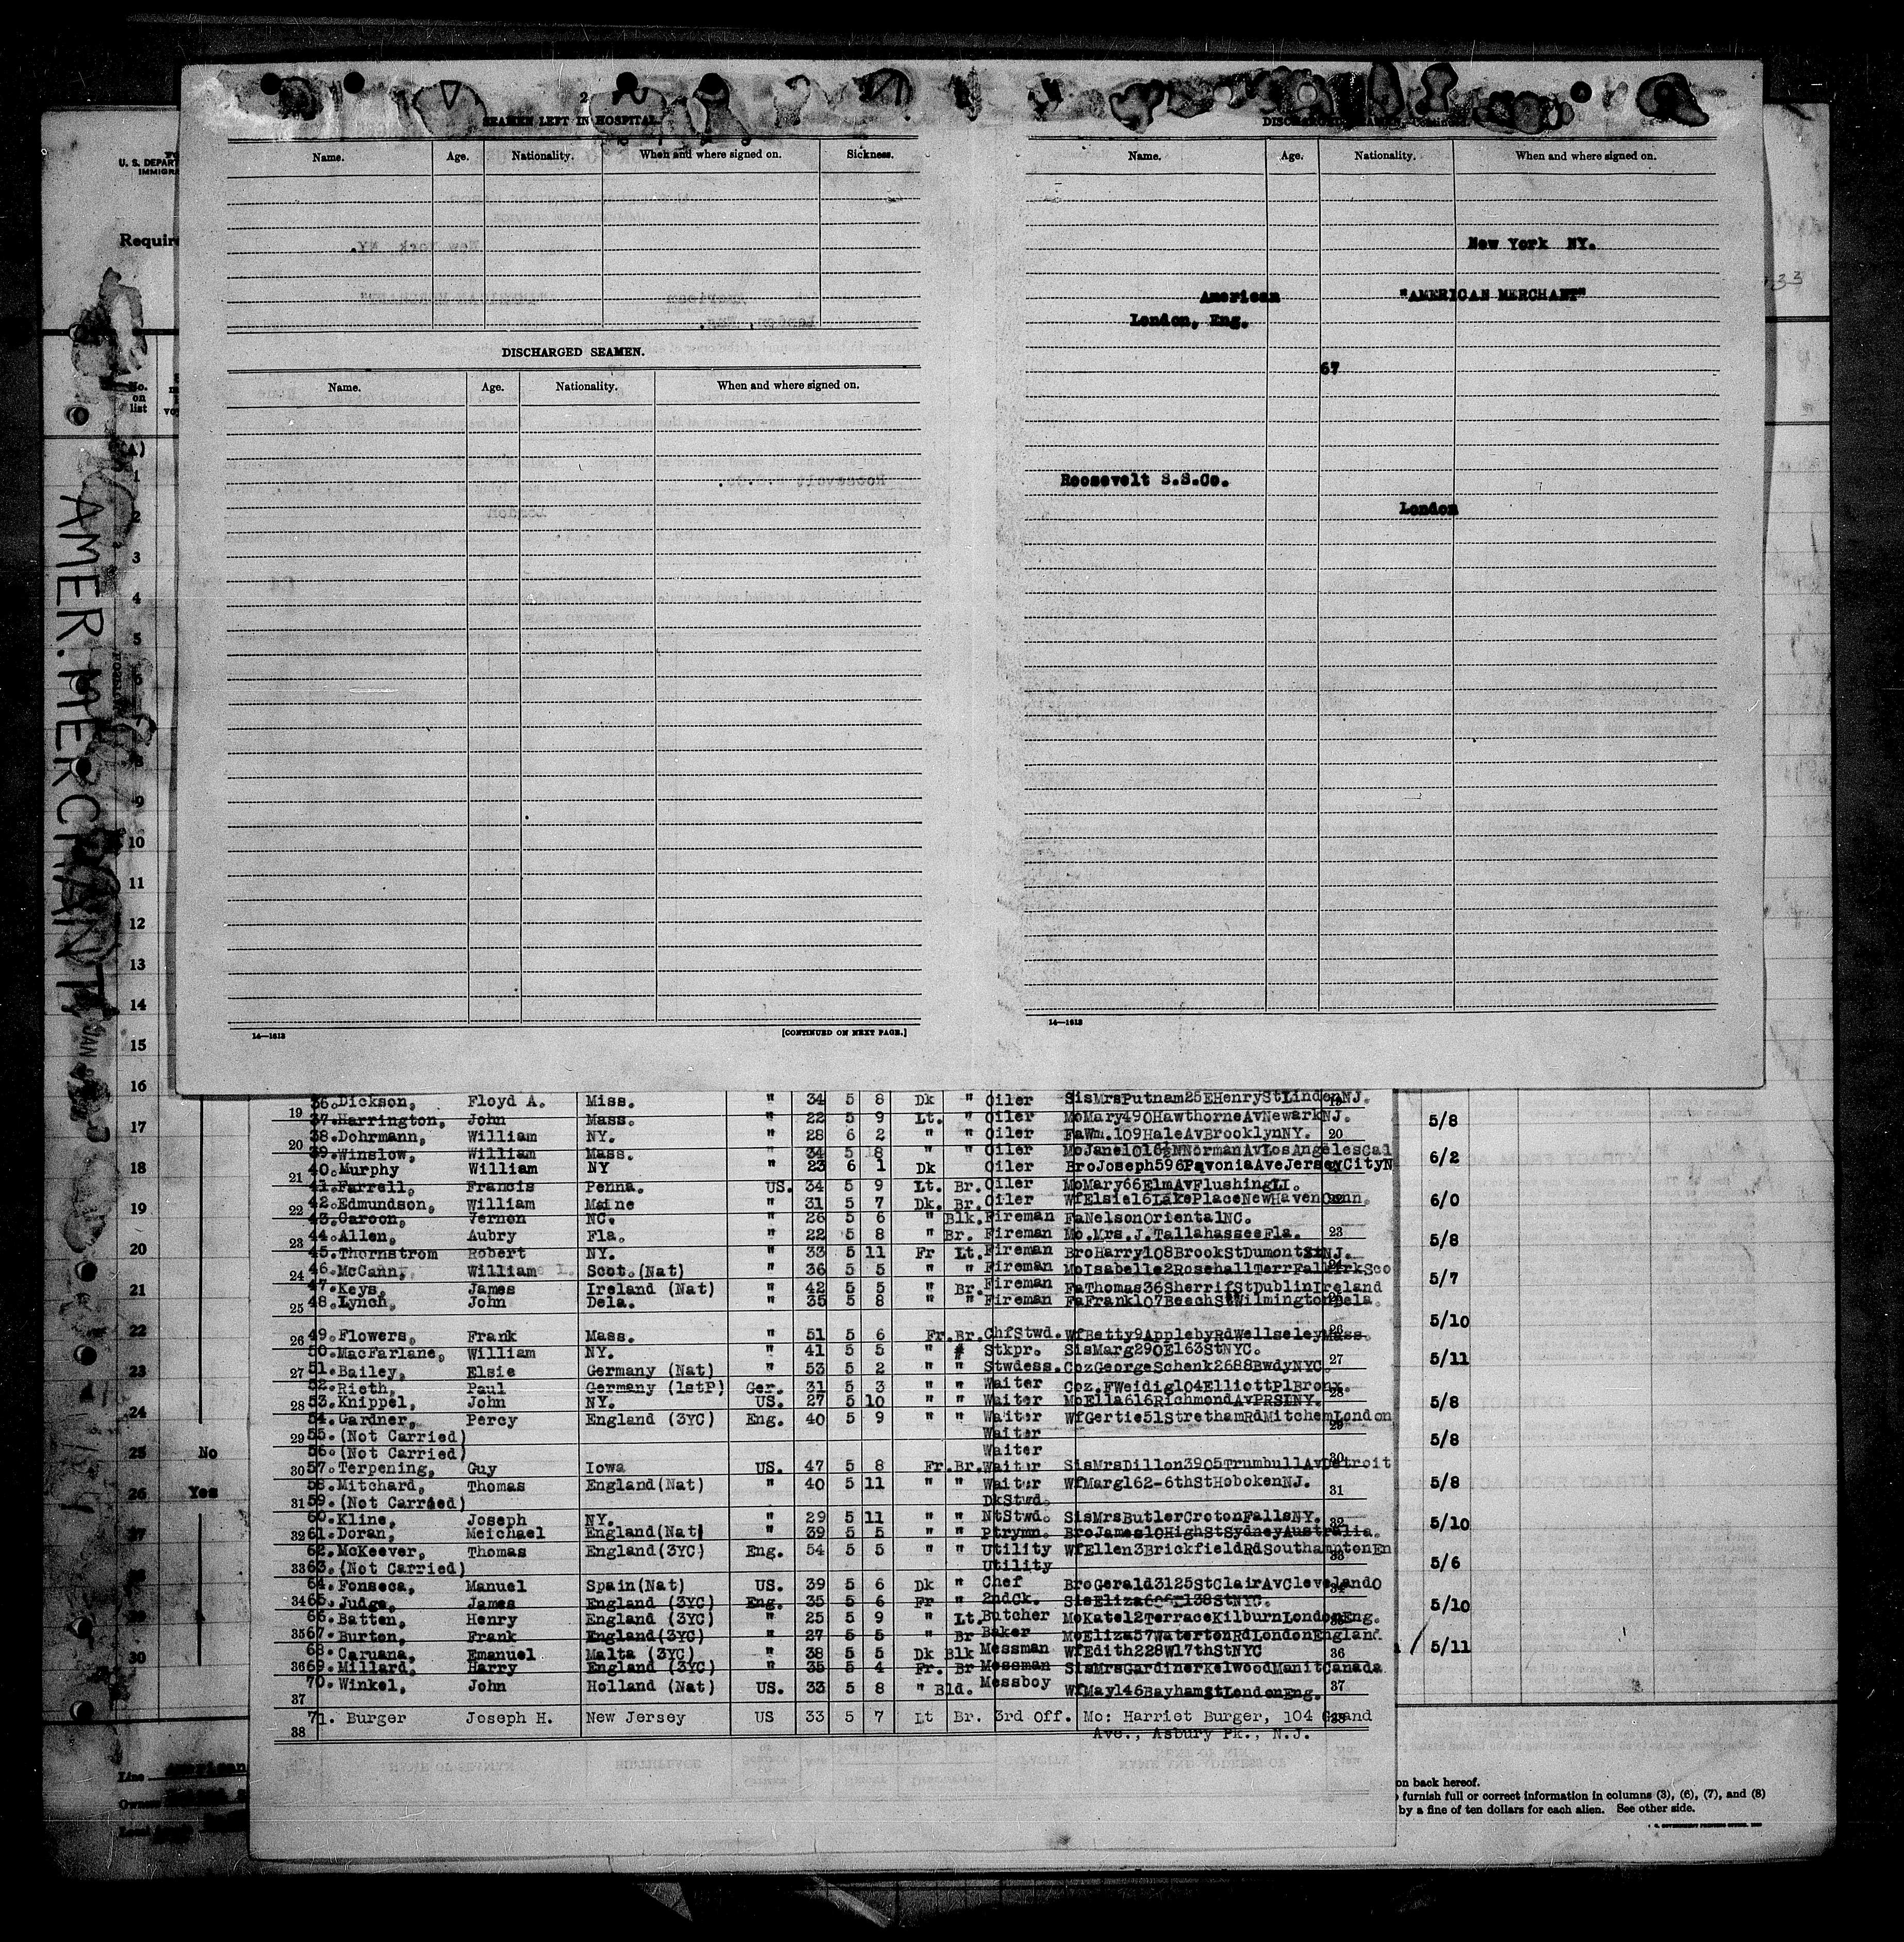 2
SEAMEN LEFT IN HOSPITAL.
Name. Age. Nationality. When and where signed on. Sickness.
DISCHARGED SEAMEN.
Name. Age. Nationality. When and where signed on.
14—1613 [CONTINUED ON NEXT PAGE.]
DISCHARGED SEAMEN
Name. Age. Nationality. When and where signed on.
New York NY.
American "AMERICAN MERCHANT"
London, Eng.
67
Roosevelt S.S.Co.
London
14—1613
U. S. DEPART
IMMIGRA
Require
33
No. on list
AMER. MERCHANT
JAN
1
2
3
4
5
8
9
10
11
12
13
14
15
16
17
18
19
20
21
22
23
24
25 No
26 Yes
27
28
29
30
36. Dickson, Floyd A. Miss. " 34 5 8 Dk " Oiler SisMrsPutnam25EHenryStLindenNJ.
37. Harrington, John Mass. " 22 5 9 Lt. " Oiler MoMary490HawthorneAvNewarkNJ.
38. Dohrmann, William NY. " 28 6 2 " " Oiler FaWm.109HaleAvBrooklynNY.
39. Winslow, William Mass. " 34 5 8 " " Oiler MoJane1016½NNormanAvLosAngelesCal
40. Murphy William NY " 23 6 1 Dk Oiler BroJoseph596PavoniaAveJerseyCityN
41. Farrell, Francis Penna. US. 34 5 9 Lt. Br. Oiler MoMary66ElmAvFlushingLI.
42. Edmundson, William Maine " 31 5 7 Dk. Br. Oiler WfElsie16LakePlaceNewHavenConn.
43. Caroon, Vernon NC. " 26 5 6 " Blk. Fireman FaNelsonOrientalNC.
44. Allen, Aubry Fla. " 22 5 8 " Br. Fireman Mo.Mrs.J.TallahasseeFla.
45. Thornstrom Robert NY. " 33 5 11 Fr Lt. Fireman BroHarry108BrookStDumont NJ.
46. McCann, William Scot.(Nat) " 36 5 5 " " Fireman MoIsabelle2RosehallTerrFalkirkSco
47. Keys, James Ireland (Nat) " 42 5 5 " Br. Fireman FaThomas36SherrifStDublinIreland
48. Lynch, John Dela. " 35 5 8 " " Fireman FaFrank107BeechStWilmingtonDela.
49. Flowers, Frank Mass. " 51 5 6 Fr. Br. ChfStwd. WfBetty9ApplebyRdWellseleyMass.
50. MacFarlane, William NY. " 41 5 5 " # Stkpr. SisMarg290E163StNYC.
51. Bailey, Elsie Germany (Nat) " 53 5 2 " " Stwdess. CozGeorgeSchenk2688BwdyNYC
52. Rieth, Paul Germany (1stP) Ger. 31 5 3 " " Waiter Coz.FWeidig104ElliottPlBronx.
53. Knippel, John NY. US. 27 5 10 " " Waiter MoElla616RichmondAvPRSINY.
54. Gardner, Percy England (3YC) Eng. 40 5 9 " " Waiter WfGertie51StrethamRdMitchemLondon
55. (Not Carried) Waiter
56. (Not Carried) Waiter
57. Terpening, Guy Iowa US. 47 5 8 Fr. Br. Waiter SisMrsDillon3905TrumbullAvDetroit
58. Mitchard, Thomas England(Nat) " 40 5 11 " " Waiter WfMarg162-6thStHobokenNJ.
59. (Not Carried) DkStwd.
60. Kline, Joseph NY. " 29 5 11 " " NtStwd. SisMrsButlerCrotonFallsNY.
61. Doran, Meichael England(Nat) " 39 5 5 " " Ptrymn. BroJames10HighStSydneyAustralia.
62. McKeever, Thomas England(3YC) Eng. 54 5 5 " " Utility WfEllen3BrickfieldRdSouthamptonEn
63. (Not Carried) Utility
64. Fonseca, Manuel Spain(Nat) US. 39 5 6 Dk " Chef BroGerald3125StClairAvClevelandO
65. Judge, James England (3YC) Eng. 35 5 6 Fr " 2ndCk. SisEliza606E138StNYC.
66. Batten, Henry England (3YC) " 25 5 9 " Lt. Butcher MoKate12TerraceKilburnLondonEng.
67. Burton, Frank England(3YC) " 27 5 5 " Br Baker MoEliza57WatertonRdLondonEngland.
68. Caruana, Emanuel Malta (3YC) " 38 5 5 Dk Blk Messman WfEdith228W17thStNYC
69. Millard, Harry England (3YC) " 35 5 4 Fr. Br Messman SisMrsGardinerKelwoodManitCanada
70. Winkel, John Holland (Nat) US. 33 5 8 " Bld. Messboy WfMay146BayhamStLondonEng.
71. Burger Joseph H. New Jersey US 33 5 7 Lt Br. 3rd Off. Mo: Harriet Burger, 104 Grand
Ave., Asbury Pk., N.J.
5/8
6/2
6/0
5/8
5/7
5/10
5/11
5/8
5/8
5/8
5/10
5/6
5/10
5/11
Line American
Owners
on back hereof.
furnish full or correct information in columns (3), (6), (7), and (8)
by a fine of ten dollars for each alien. See other side.